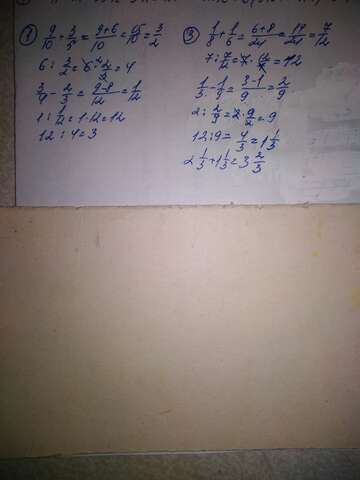 ① 9/10 + 3/5 = (9+6)/10 = 15/10 = 3/2
6 : 3/2 = 6 · 2/3 = 4
3/4 - 2/3 = (9-8)/12 = 1/12
1 : 1/12 = 1·12 = 12
12 : 4 = 3
③ 1/8 + 1/6 = (6+8)/24 = 14/24 = 7/12
7 : 7/12 = 7 · 12/7 = 12
1/3 - 1/9 = (3-1)/9 = 2/9
2 : 2/9 = 2·9/2 = 9
12 : 9 = 4/3 = 1 1/3
2 1/3 + 1 1/3 = 3 2/3